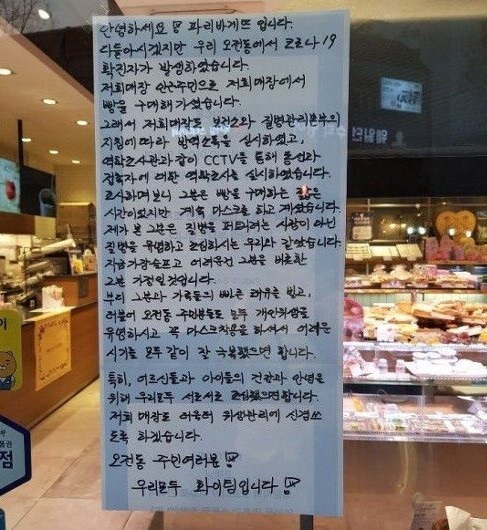 안녕하세요 파리바게뜨 입니다.
다들아시겠지만 우리 오전동에서 코로나19
확진자가 발생하였습니다.
저희매장 인근주민으로 저희매장에서
빵을 구매해가셨습니다.
그래서 저희매장도 보건소와 질병관리본부의
지침에 따라 방역소독을 실시하였고,
역학조사관과 같이 CCTV를 통해 동선과
접촉자에 대한 역학조사를 실시하였습니다.
조사하며보니 그분은 빵을 구매하는 짧은
시간이었지만 계속 마스크를 하고 계셨습니다.
제가 본 그분은 질병을 퍼뜨리려는 사람이 아닌
질병을 유영하고 조심하시는 우리와 같았습니다.
지금가장슬프고 어려운건 그분을 비롯한
그분 가정일것입니다.
부디 그분과 가족들의 빠른 쾌유를 빌고,
더불어 오전동 주민분들도 모두 개인위생을
유영하시고 꼭 마스크착용을 하여서 어려운
시기를 모두 같이 잘 극복했으면 합니다.
특히, 어르신들과 아이들의 건강과 안녕을
위해 우리모두 서로서로 조심했으면합니다.
저희 매장도 더욱더 위생관리에 신경쓰
도록 하겠습니다.
오전동 주민여러분
우리모두 화이팅입니다
점